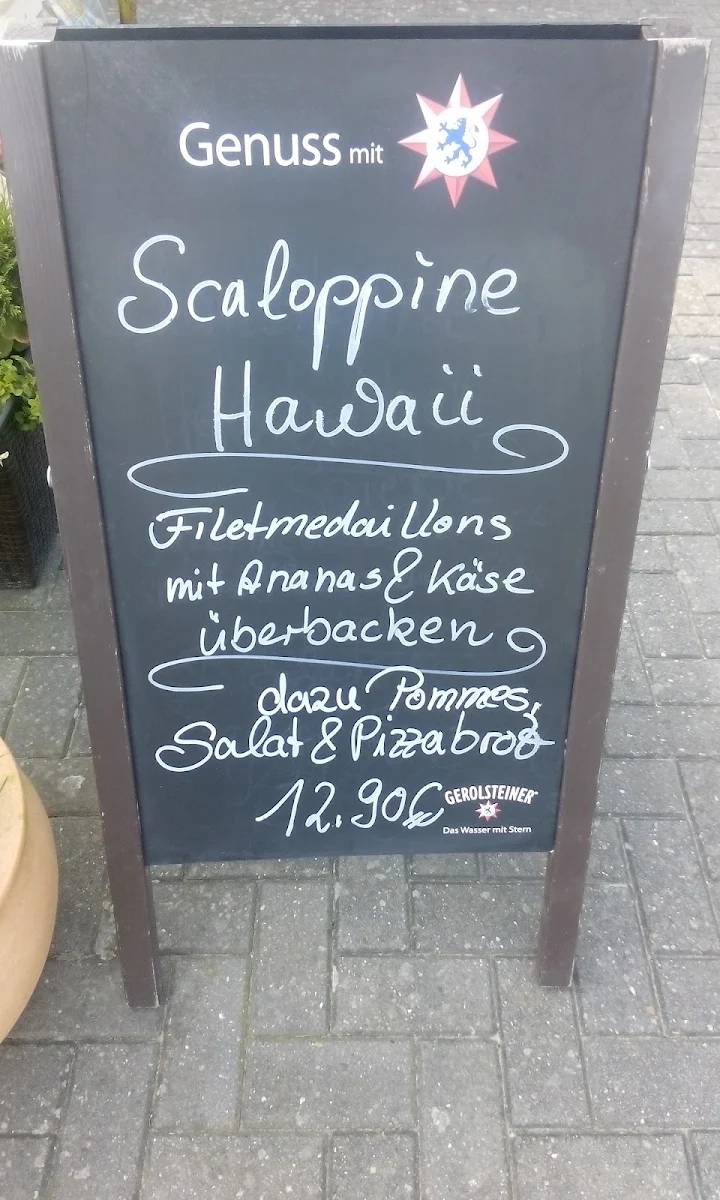 Genuss mit
Scaloppine
Hawaii
Filetmedaillons
mit Ananas & Käse
überbacken
dazu Pommes,
Salat & Pizzabrot
12.90€
GEROLSTEINER
Das Wasser mit Stern